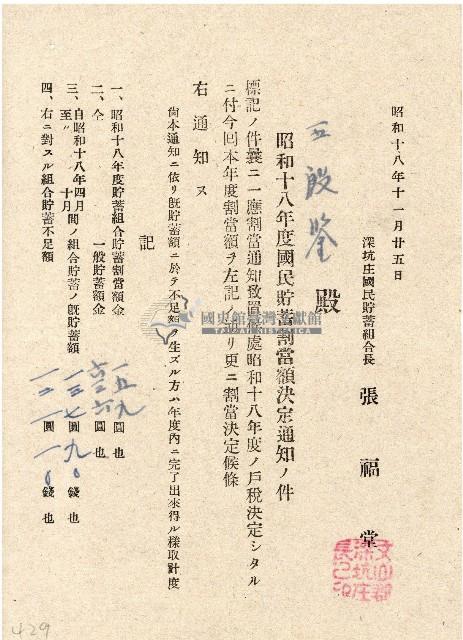 昭和十八年十一月廿五日
深坑庄國民貯蓄組合長 張福堂
文山郡深坑庄長之印
殿
昭和十八年度國民貯蓄割當額決定通知ノ件
標記ノ件曩ニ一應割當通知致置候處昭和十八年度ノ戶稅決定シタル
ニ付今回本年度割當額ヲ左記ノ通リ更ニ割當決定候條
右通知ス
尙本通知ニ依リ旣貯蓄額ニ於テ不足額ヲ生ズル方ハ年度內ニ完了出來得ル樣取計度
記
一、昭和十八年度貯蓄組合貯蓄割當額金 一五九圓也
二、仝 一般貯蓄額金 六三六圓也
三、自昭和十八年四月至〃十月間ノ組合貯蓄ノ旣貯蓄額 一三七圓九〇錢也
四、右ニ對スル組合貯蓄不足額 圓一〇錢也
國史館臺灣文獻館
TAIWAN HISTORICA
429